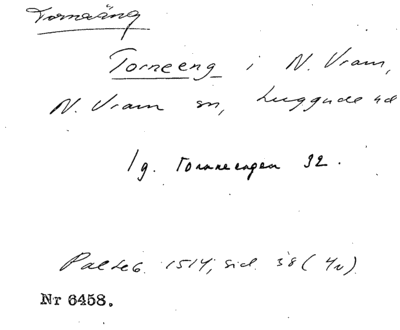 Tornaäng
Torneeng i N. Vram,
N. Vram sn, Luggude hd
lg. Tornneengen 32.
Palteb. 1514, sid. 38 (4v)
Nr 6458.